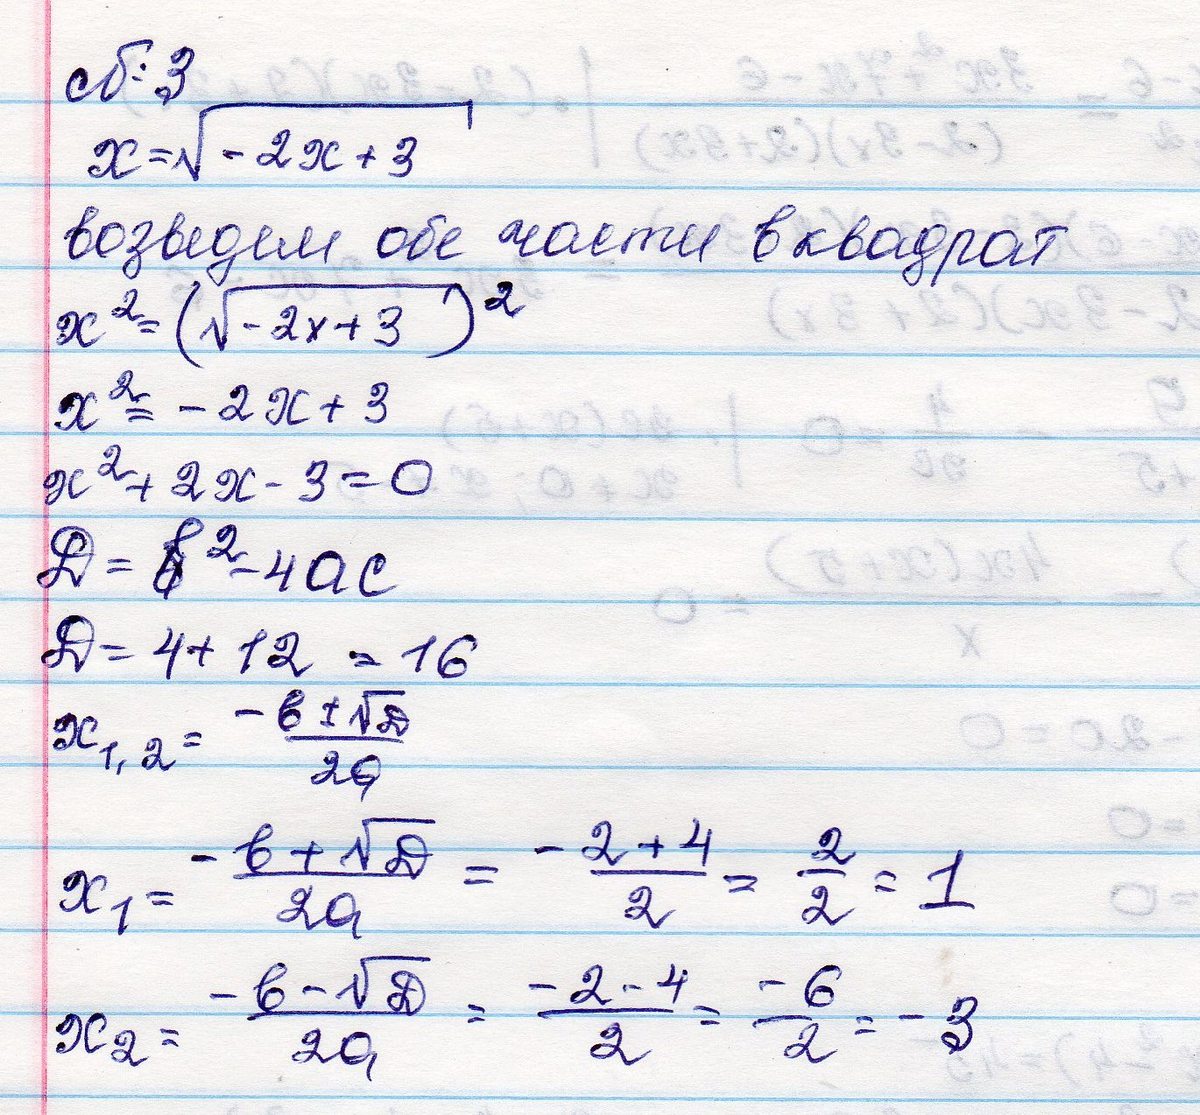 №3
x = √(-2x + 3)
возведем обе части в квадрат
x² = (√(-2x + 3))²
x² = -2x + 3
x² + 2x - 3 = 0
D = b² - 4ac
D = 4 + 12 = 16
x₁,₂ = (-b ± √D) / 2a
x₁ = (-b + √D) / 2a = (-2 + 4) / 2 = 2/2 = 1
x₂ = (-b - √D) / 2a = (-2 - 4) / 2 = -6/2 = -3